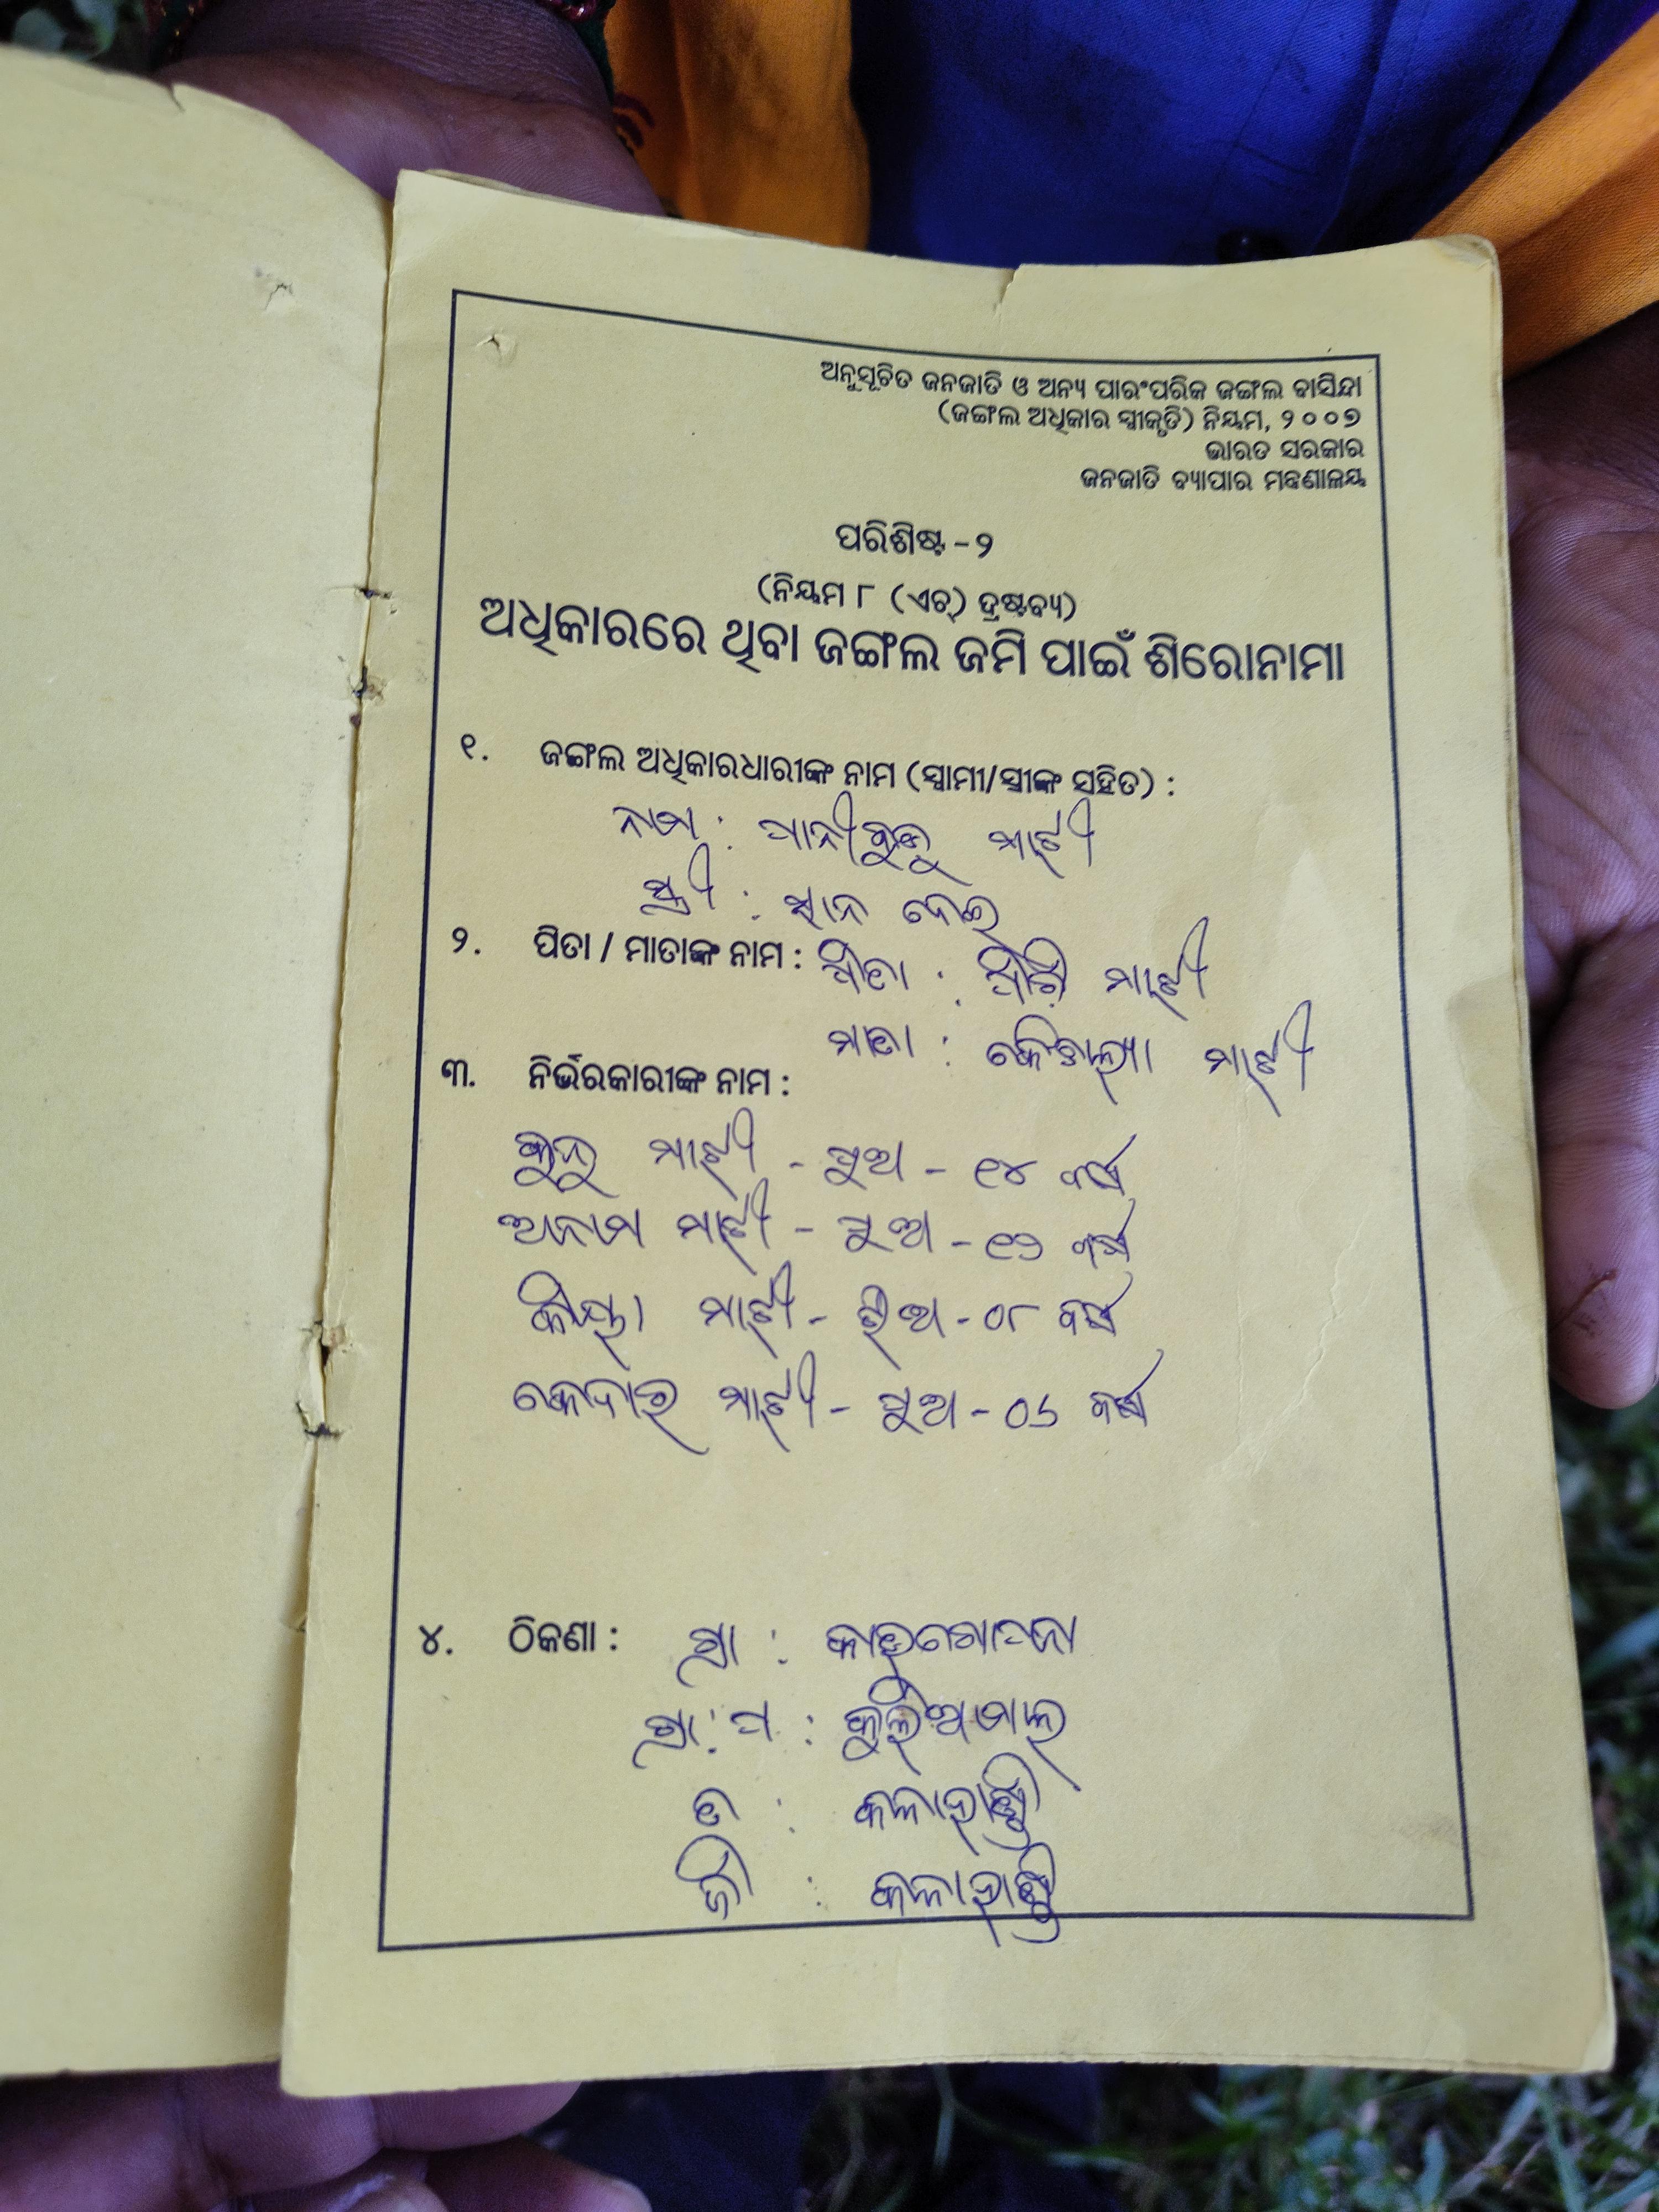 ଅନୁସୂଚିତ ଜନଜାତି ଓ ଅନ୍ୟ ପାରଂପରିକ ଜଙ୍ଗଲ ବାସିନ୍ଦା
(ଜଙ୍ଗଲ ଅଧିକାର ସ୍ୱୀକୃତି) ନିୟମ, ୨୦୦୭
ଭାରତ ସରକାର
ଜନଜାତି ବ୍ୟାପାର ମନ୍ତ୍ରଣାଳୟ
ପରିଶିଷ୍ଟ -୨
(ନିୟମ ୮ (ଏଚ୍) ଦ୍ରଷ୍ଟବ୍ୟ)
ଅଧିକାରରେ ଥିବା ଜଙ୍ଗଲ ଜମି ପାଇଁ ଶିରୋନାମା
୧. ଜଙ୍ଗଲ ଅଧିକାରଧାରୀଙ୍କ ନାମ (ସ୍ୱାମୀ/ସ୍ତ୍ରୀଙ୍କ ସହିତ) :
ନାମ : ମାଝୀ
ସ୍ତ୍ରୀ : ଦେଇ
୨. ପିତା / ମାତାଙ୍କ ନାମ : ପିତା : ମାଝୀ
ମାତା : ମାଝୀ
୩. ନିର୍ଭରକାରୀଙ୍କ ନାମ :
କୁନୁ ମାଝୀ - ପୁଅ - ୧୪ ବର୍ଷ
ମାଝୀ - ପୁଅ - ୧୨ ବର୍ଷ
ମାଝୀ - ଝିଅ - ୦୮ ବର୍ଷ
କେଦାର ମାଝୀ - ପୁଅ - ୦୬ ବର୍ଷ
୪. ଠିକଣା : ଗ୍ରା :
ଗ୍ରା : ପ : କୁଲିଅମାଲ
ତ : କଳାହାଣ୍ଡି
ଜି : କଳାହାଣ୍ଡି